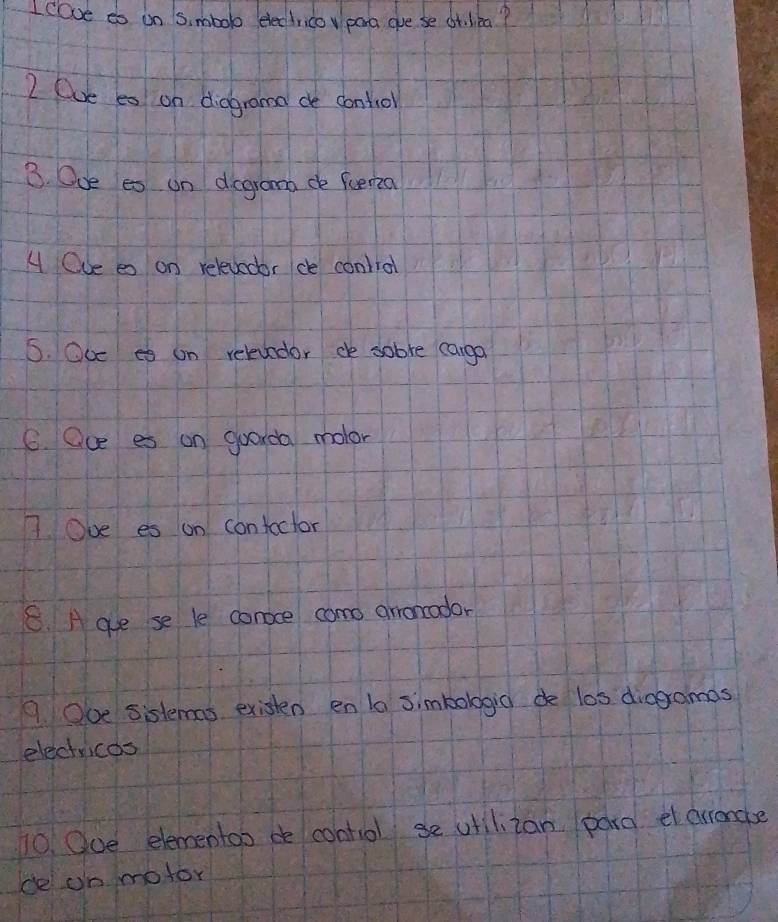 1 Que es un simbolo electrico y para que se utiliza?
2 Que es un diagrama de control
3. Que es un diagrama de fuerza
4 Que es un relevador de control
5. Que es un relevador de sobre carga
6. Que es un guarda motor
7. Que es un contactor
8. A que se le conoce como arrancador
9. Que sistemas existen en la simbologia de los diagramas
electricos
10. Que elementos de control se utilizan para el arranque
de un motor